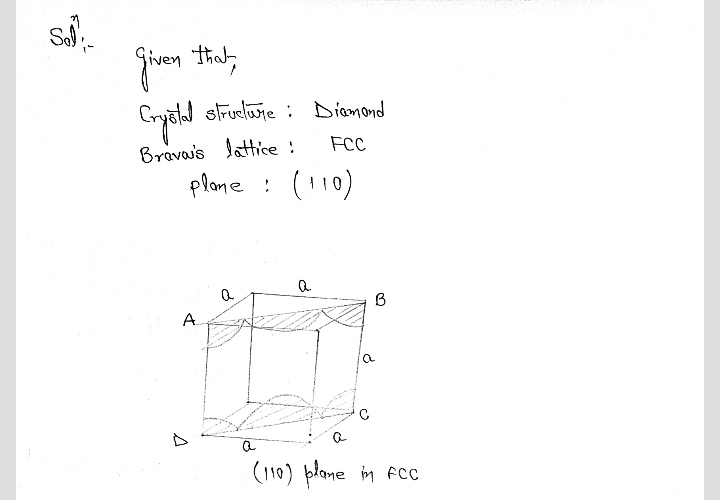 Solⁿ:-
Given that,
Crystal structure : Diamond
Bravais lattice : FCC
plane : (110)
a
a
A
B
a
C
D
a
a
(110) plane in FCC